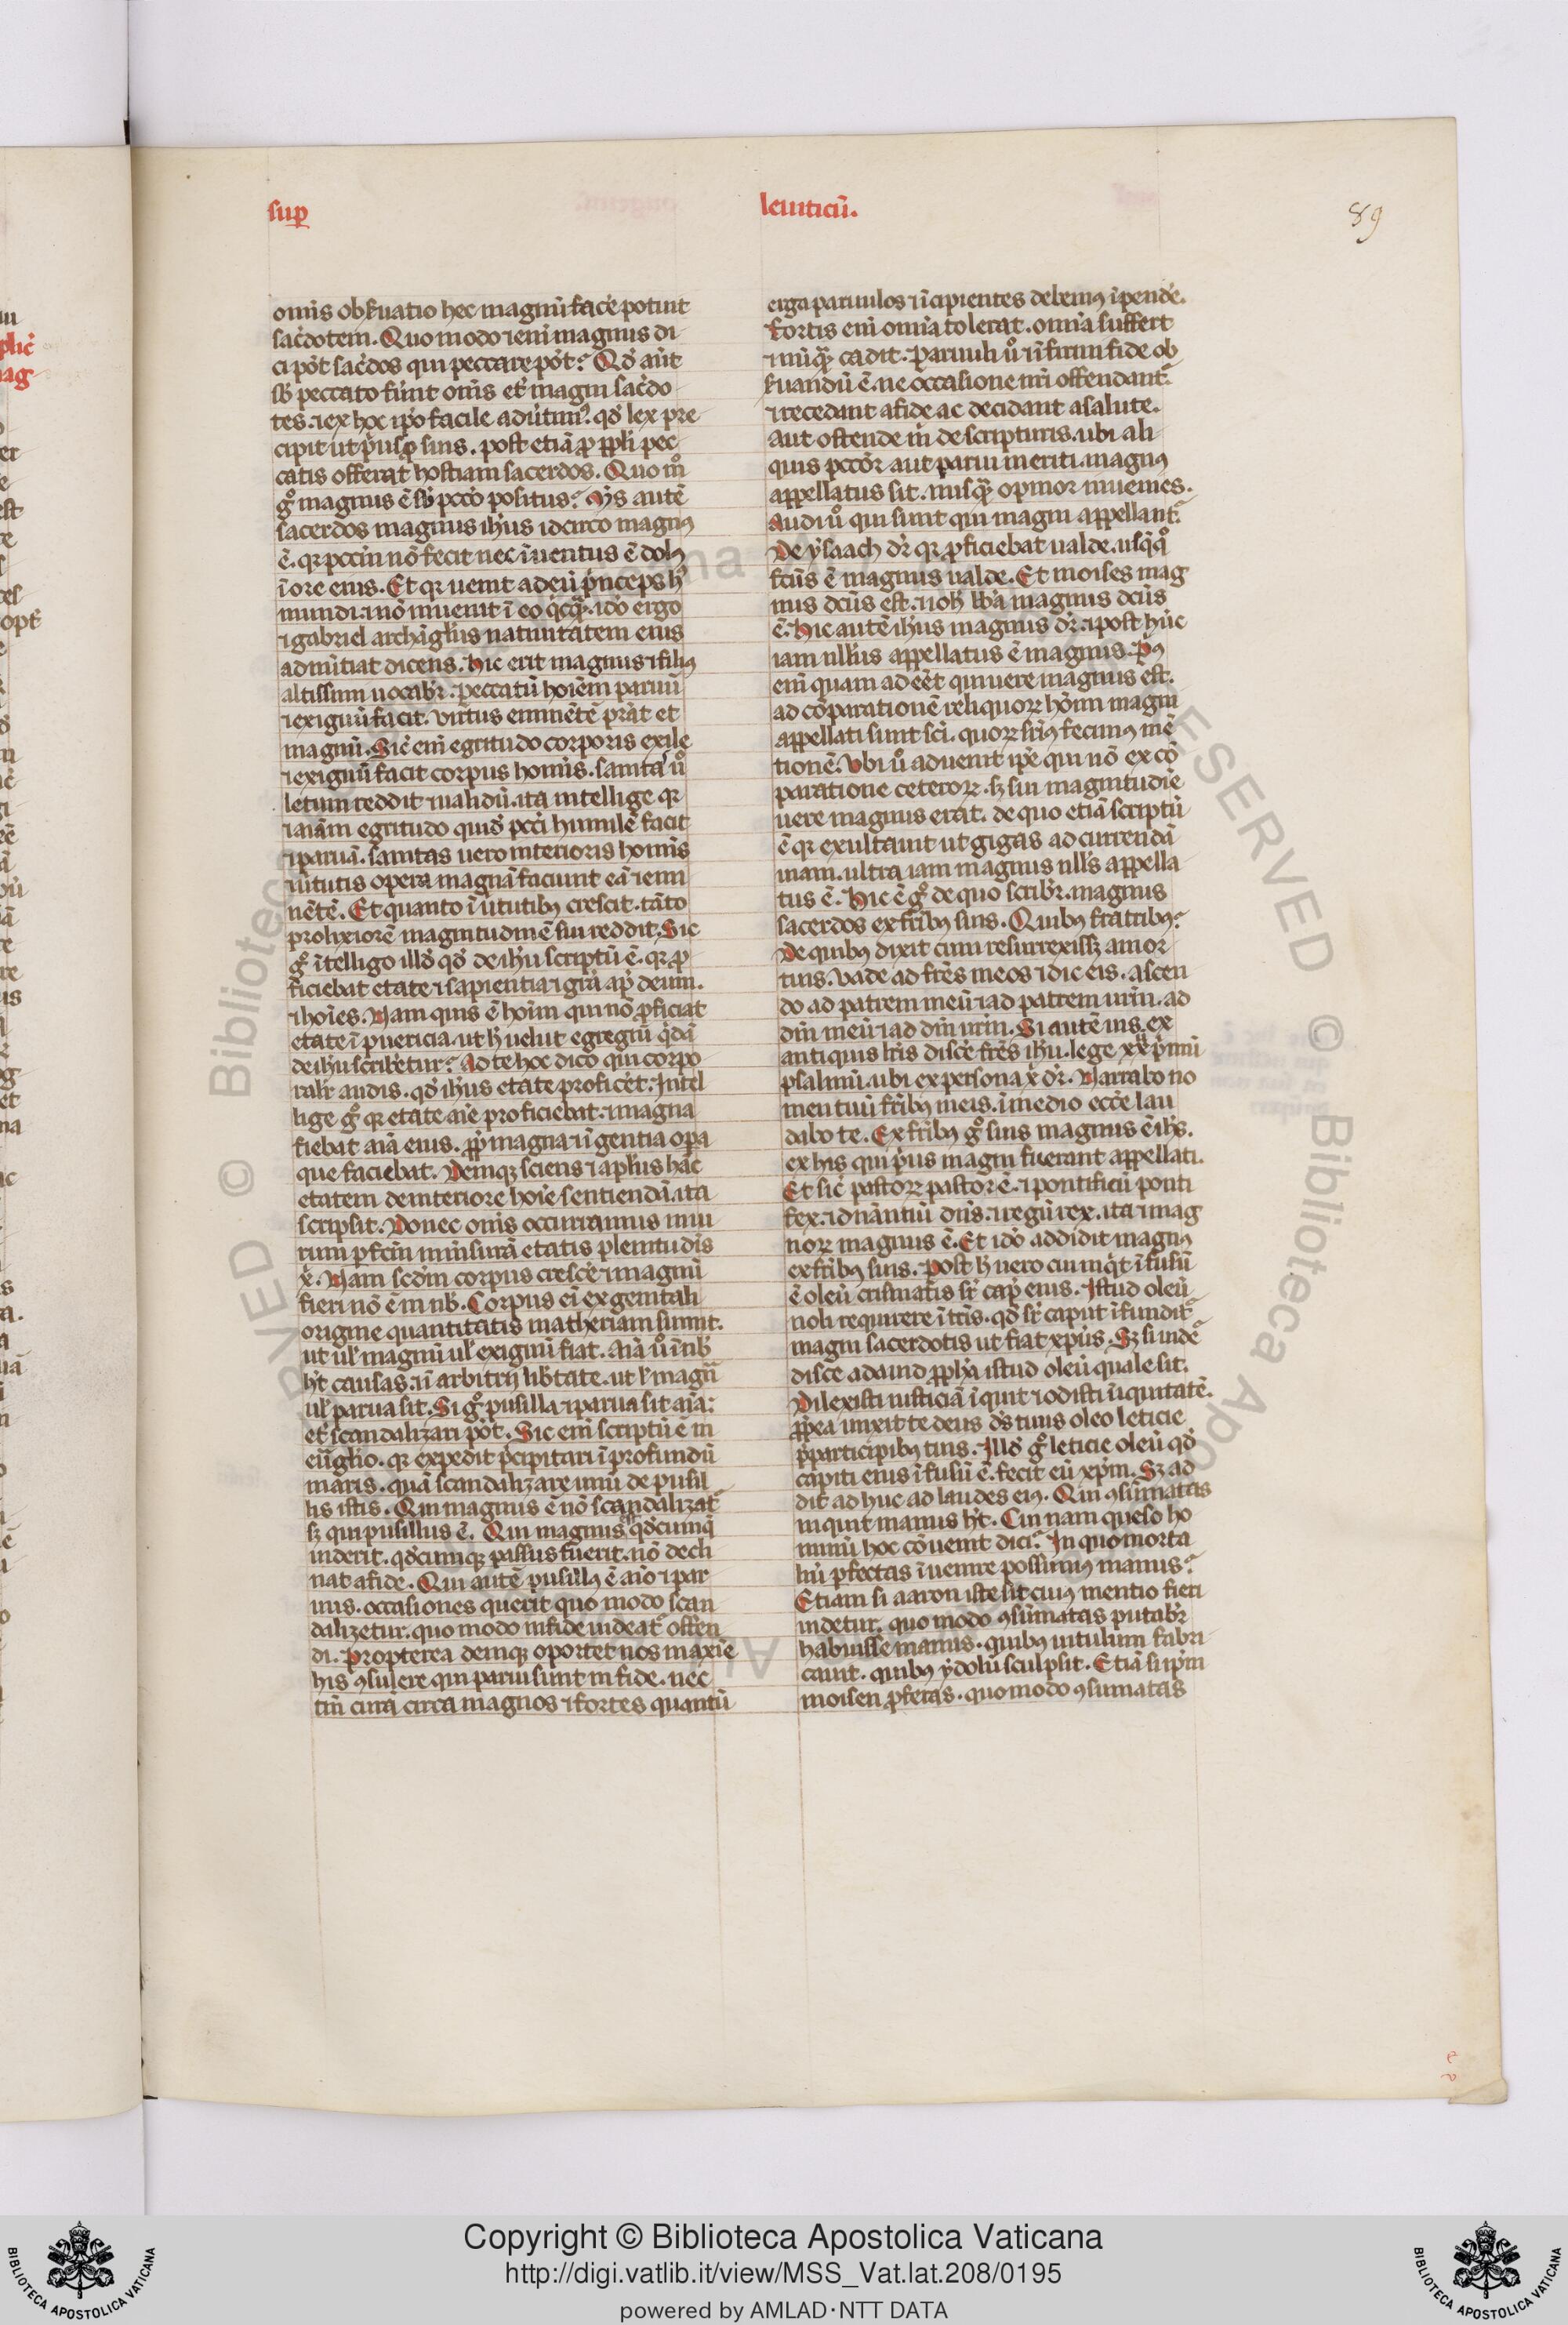 sup
leuiticū.
89
omīs obẜuatio hec magnū facẻ potuit
sac̉dotem. Quo modo ⁊ eni magnus di
ci pōt sac̉dos qui peccare pōt? Qđ aūt
sb̄ peccato fuīnt om̄s et̄ magni sac̉do
tes. ⁊ ex hoc ip̄o facile adu̓timꝰ. qđ lex pre
cipit ut p̓us ꝓ suis. post etiā ꝓ pp̄li pec
catis offerat hostiam sacerdos. Quo mͦ
gͦ magnus ē sb̄ pccō positus? Ih̄s autē
sacerdos magnus ih̄us idcirco magnꝰ
ē. qꝛ pccm̄ nō fecit nec īuentus ē dolꝰ
ī ore eius. Et qꝛ uenit ad eū p̓nceps hꝰ
mundi. ⁊ nō inuenit ī eo q̓cq̄. idō ergo
⁊ gabriel archāgl̄us natiuitatem eius
adnūtiat dicens. Hic erit magnus ⁊ filiꝰ
altissimi uocabr̄. peccatū hoīem paruū
⁊ exiguū facit. uirtus eminētē p̄rat et
magnū. Sic̄ eni egritudo corporis exile
⁊ exiguū facit corpus homīs. sanitaˢ uͦ
letum reddit ⁊ ualidū. ita intellige qꝛ
⁊ aīam egritudo quid̄ pcci humilē facit
⁊ paruā. sanitas uero interioris homīs
⁊ uirtutis opera magnā faciunt eā ⁊ emi
nētē. Et quanto ī ututibꝰ crescit. tāto
prolixiorē magnitudinē sui reddit. Sic
gͦ ītelligo illđ qđ de ih̄u scriptū ē. qꝛ ꝓ
ficiebat etate ⁊ sapientia ⁊ gr̄a ap̄ deum.
⁊ hoīes. Nam quis ē hoīm qui nō ꝓficiat
etate ī puericia. ut h̄ uelut egregiū q̓dā
de ih̄u scribetur? Ad te hoc dico qui corpo
ralr̄ audis. qđ ih̄us etate proficēt. Intel
lige gͦ qꝛ etate aīe proficiebat. ⁊ magna
fiebat aīa eius. pp̄ magna ⁊ īgentia op̄a
que faciebat. Deniqꝫ sciens ⁊ apl̄us hāc
etatem de interiore hoīe sentiendā. ita
scripsit. Donec om̄s occurramus in ui
rum pfctm̄ in mīsurā etatis plenitudīs
x̄. Nam scdm̄ corpus crescẻ ⁊ magnū
fieri nō ē in nb̄. Corpus ei ex genitali
origine quantitatis matheriam sumit.
ut ul̓ magnū ul̓ exiguū fiat. Aīa uͦ ī nb̄
h̄t causas. ⁊ ī arbitrij lib̄tate. ut ul̓ magnā
ul̓ parua sit. Si gͦ pusilla ⁊ parua sit aīa:
et̄ scandalizari pōt. Sic eni scriptū ē in
eūglio. qꝛ expedit p̄cipitari ī profundū
maris. quā scandalizare unū de pusil
lis istis. Qui magnus ē nō scandalizat̄
sꝫ qui pusillus ē. Qui magnus qđcumq̄
uiderit. qđcumqꝫ passus fuerit. nō decli
nat a fide. Qui autē pusillꝰ ē aīo ⁊ par
uus. occasiones querit quo modo scan
dalizetur. quo modo in fide uideat̄ offen
di. Propterea deniqꝫ oportet nos maxīe
his ꝯsulere qui parui sunt in fide. nec
tm̄ cura circa magnos ⁊ fortes quantū
erga paruulos ⁊ īcipientes debemꝰ īpendẻ.
Fortis eni omnia tolerat. omnia suffert
⁊ nūq̄ cadit. Paruuli uͦ ⁊ īfirmi fide ob
ẜuandū ē. ne occasione nr̄i offendant̄.
⁊ recedant a fide ac decidant a salute.
Aut ostende m̄ de scripturis. ubi ali
quis pccōr aut parui meriti. magnꝰ
appellatus sit. nusq̄ opinor inuenies.
Audi uͦ qui sunt qui magni appellant̄.
De ysaach dr̄ qꝛ ꝓficiebat ualde. usq̓qͦ
fc̄us ē magnus ualde. Et moises mag
nus dc̄us est. ⁊ ioh̄ bb̄a magnus dc̄us
ē. Hic autē ih̄us magnus dr̄. ⁊ post hūc
iam null̓us appellatus ē magnus. P̓ꝰ
eni quam adēet qui uere magnus est.
ad cōparationē reliquoꝝ hoīm magni
appellati sunt sc̄i. quoꝝ sup̓ꝰ fecimꝰ mē
tionē. Ubi uͦ aduenit ip̄e qui nō ex cō
paratione ceteroꝝ. sꝫ sui magnitudīe
uere magnus erat. de quo etiā scriptū
ē qꝛ exultauit ut gigas ad currendā
uiam. ultra iam magnus nll̓s appella
tus ē. Hic ē gͦ de quo scribr̄. magnus
sacerdos ex fr̄ibꝰ suis. Quibꝰ fratribꝰ?
De quibꝰ dixit cum resurrexissꝫ a mor
tuis. Vade ad fr̄es meos ⁊ dic eis. ascen
do ad patrem meū ⁊ ad patrem ur̄m. ad
dm̄ meū ⁊ ad dm̄ ur̄m. Si autē uis ex
antiquis lr̄is discẻ fr̄es ih̄u. lege xxi p̓mū
psalmū. ubi ex persona x̄ dr̄. Narrabo no
men tuū fr̄ibꝰ meis. ī medio eccē lau
dabo te. Ex fr̄ibꝰ gͦ suis magnus ē ih̄s.
ex his qui p̓us magni fuerant appellati.
Et sic̄ pastoꝝ pastor ē. ⁊ pontificū ponti
fex. ⁊ dn̄antiū dn̄s. ⁊ regū rex. ita ⁊ mag
noꝝ magnus ē. Et idō addidit magnꝰ
ex fr̄ibꝰ suis. Post h̄ uero cui inq̓t īfusū
ē oleū crismatis sr̄ cap̄ eius. Istud oleū
noli requirere ī tr̄is. qđ sr̄ caput īfundit̄
magni sacerdotis ut fiat xp̄us. Sꝫ si uidē
disce a dauid pp̄ha istud oleū quale sit.
Dilexisti iusticiā īquit ⁊ odisti īiquitatē.
pp̄ea unxit te deus ds̄ tuus oleo leticie
p̄ participibꝰ tuis. Illđ gͦ leticie oleū qđ
capiti eius īfusū ē. fecit eū xp̄m. Sꝫ ad
dit ad huc ad laudes eiꝰ. Qui ꝯsūmatas
inquit manus h̄t. Cui nam queso ho
minū hoc cōuenit dici? In quo morta
liū pfectas īuenire possumꝰ manus?
Etiam si aaron iste sit cuiꝰ mentio fieri
uidetur. quo modo ꝯsūmatas putabr̄
habuisse manus. quibꝰ uitulum fabri
cauit. quibꝰ ydolū sculpsit. Etiā si ip̄m
moisen ꝓferas. quomodo ꝯsumatas
Copyright © Biblioteca Apostolica Vaticana
http://digi.vatlib.it/view/MSS_Vat.lat.208/0195
powered by AMLAD·NTT DATA